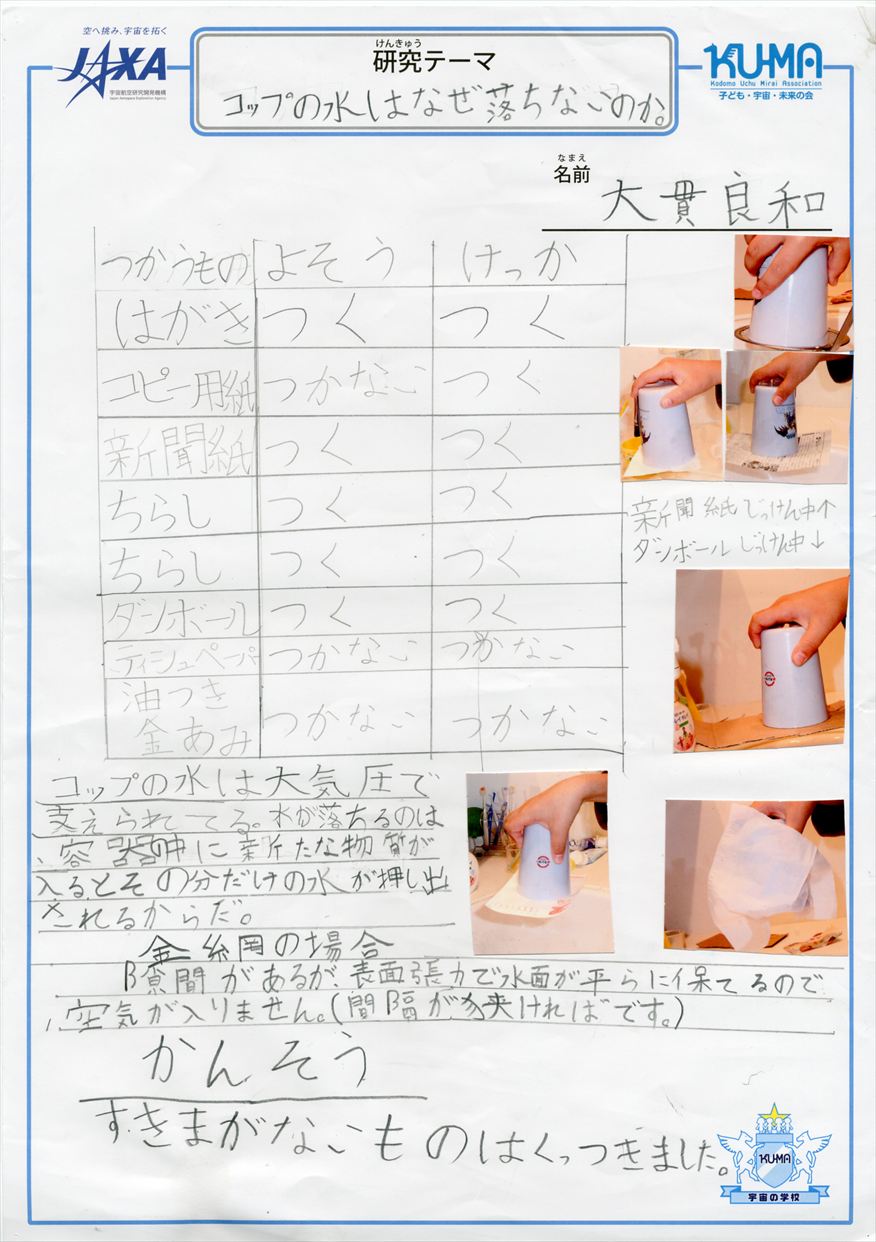 空へ挑み、宇宙を拓く
JAXA
宇宙航空研究開発機構
Japan Aerospace Exploration Agency
けんきゅう
研究テーマ
コップの水はなぜ落ちないのか。
KU-MA
Kodomo Uchu Mirai Association
子ども・宇宙・未来の会
なまえ
名前
大貫良和
つかうもの よそう けっか
はがき つく つく
コピー用紙 つかない つく
新聞紙 つく つく
ちらし つく つく
ちらし つく つく
ダンボール つく つく
ティシュペーパー つかない つかない
油つき
金あみ つかない つかない
新聞紙じっけん中↑
ダンボールじっけん中↓
コップの水は大気圧で
支えられてる。水が落ちるのは
、容器中に新たな物質が
入るとその分だけの水が押し出
されるからだ。
金網の場合
隙間があるが、表面張力で水面が平らに保てるので
、空気が入りません。(間隔が狭ければです。)
かんそう
すきまがないものはくっつきました。
KU-MA
宇宙の学校